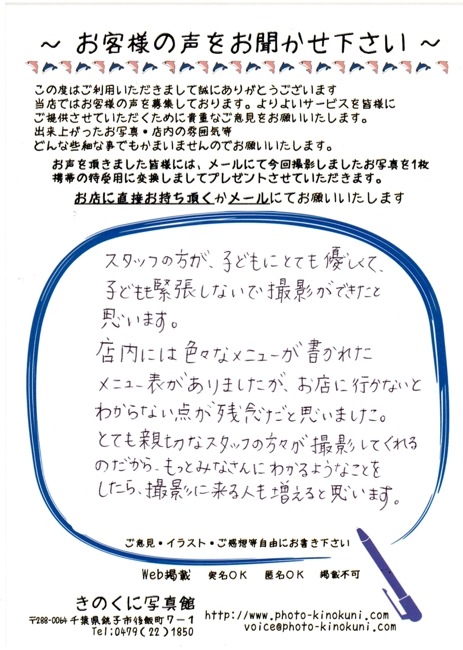 ～ お客様の声をお聞かせ下さい ～
この度はご利用いただきまして誠にありがとうございます
当店ではお客様の声を募集しております。よりよいサービスを皆様に
ご提供させていただくために貴重なご意見をお願いいたします。
出来上がったお写真・店内の雰囲気等
どんな些細な事でもかまいませんのでお願いいたします。
お声を頂きました皆様には、メールにて今回撮影しましたお写真を1枚
携帯の待受用に変換しましてプレゼントさせていただきます。
お店に直接お持ち頂くかメールにてお願いいたします
スタッフの方が、子どもにとても優しくて、
子どもも緊張しないで撮影ができたと
思います。
店内には色々なメニューが書かれた
メニュー表がありましたが、お店に行かないと
わからない点が残念だと思いました。
とても親切なスタッフの方々が撮影してくれる
のだから、もっとみなさんにわかるようなことを
したら、撮影に来る人も増えると思います。
ご意見・イラスト・ご感想等自由にお書き下さい
Web掲載 実名OK 匿名OK 掲載不可
きのくに写真館
〒288-0064 千葉県銚子市後飯町7-1
Tel:0479(22)1850
http://www.photo-kinokuni.com/
voice@photo-kinokuni.com